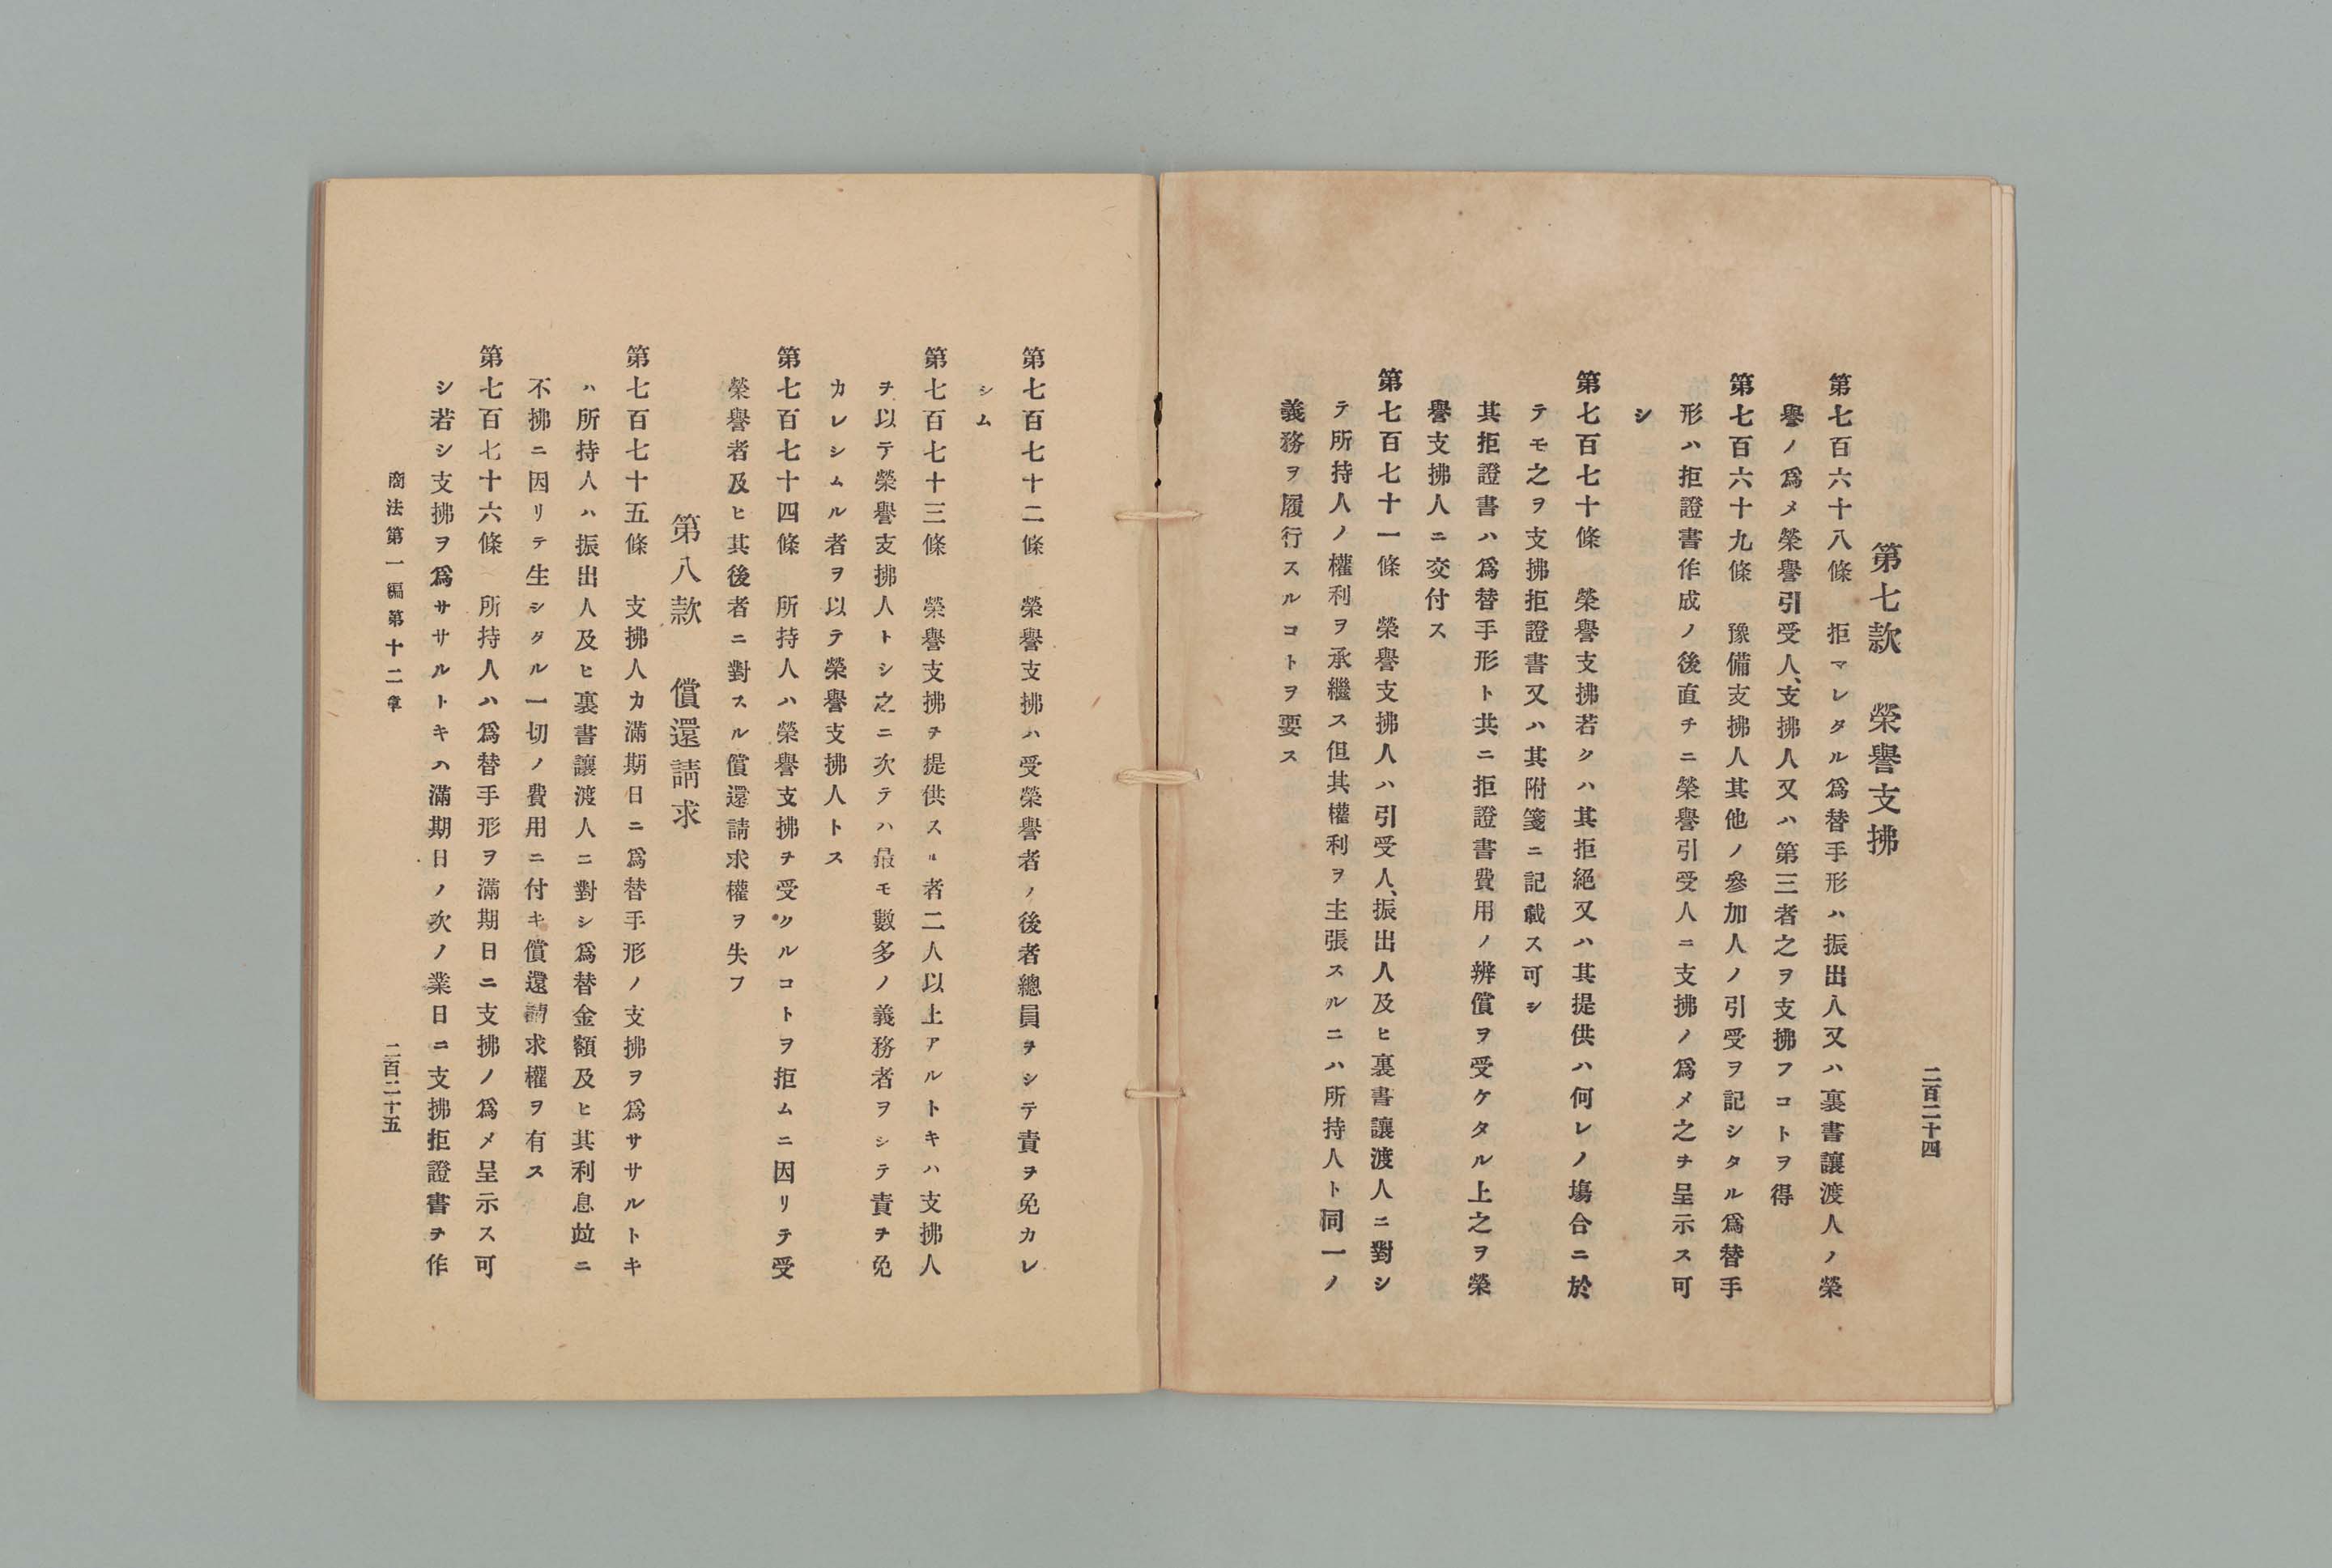 二百二十四
第七款　榮譽支拂
第七百六十八條　拒マレタル爲替手形ハ振出人又ハ裏書讓渡人ノ榮
譽ノ爲メ榮譽引受人、支拂人又ハ第三者之ヲ支拂フコトヲ得
第七百六十九條　豫備支拂人其他ノ參加人ノ引受ヲ記シタル爲替手
形ハ拒證書作成ノ後直チニ榮譽引受人ニ支拂ノ爲メ之ヲ呈示ス可
シ
第七百七十條　榮譽支拂若クハ其拒絕又ハ其提供ハ何レノ塲合ニ於
テモ之ヲ支拂拒證書又ハ其附箋ニ記載ス可シ
其拒證書ハ爲替手形ト共ニ拒證書費用ノ辨償ヲ受ケタル上之ヲ榮
譽支拂人ニ交付ス
第七百七十一條　榮譽支拂人ハ引受人、振出人及ヒ裏書讓渡人ニ對シ
テ所持人ノ權利ヲ承繼ス但其權利ヲ主張スルニハ所持人ト同一ノ
義務ヲ履行スルコトヲ要ス
第七百七十二條　榮譽支拂ハ受榮譽者ノ後者總員ヲシテ責ヲ免カレ
シム
第七百七十三條　榮譽支拂ヲ提供スル者二人以上アルトキハ支拂人
ヲ以テ榮譽支拂人トシ之ニ次テハ最モ數多ノ義務者ヲシテ責ヲ免
カレシムル者ヲ以テ榮譽支拂人トス
第七百七十四條　所持人ハ榮譽支拂ヲ受クルコトヲ拒ムニ因リテ受
榮譽者及ヒ其後者ニ對スル償還請求權ヲ失フ
第八款　償還請求
第七百七十五條　支拂人カ滿期日ニ爲替手形ノ支拂ヲ爲ササルトキ
ハ所持人ハ振出人及ヒ裏書讓渡人ニ對シ爲替金額及ヒ其利息竝ニ
不拂ニ因リテ生シタル一切ノ費用ニ付キ償還請求權ヲ有ス
第七百七十六條　所持人ハ爲替手形ヲ滿期日ニ支拂ノ爲メ呈示ス可
シ若シ支拂ヲ爲ササルトキハ滿期日ノ次ノ業日ニ支拂拒證書ヲ作
商法第一編第十二章
二百二十五